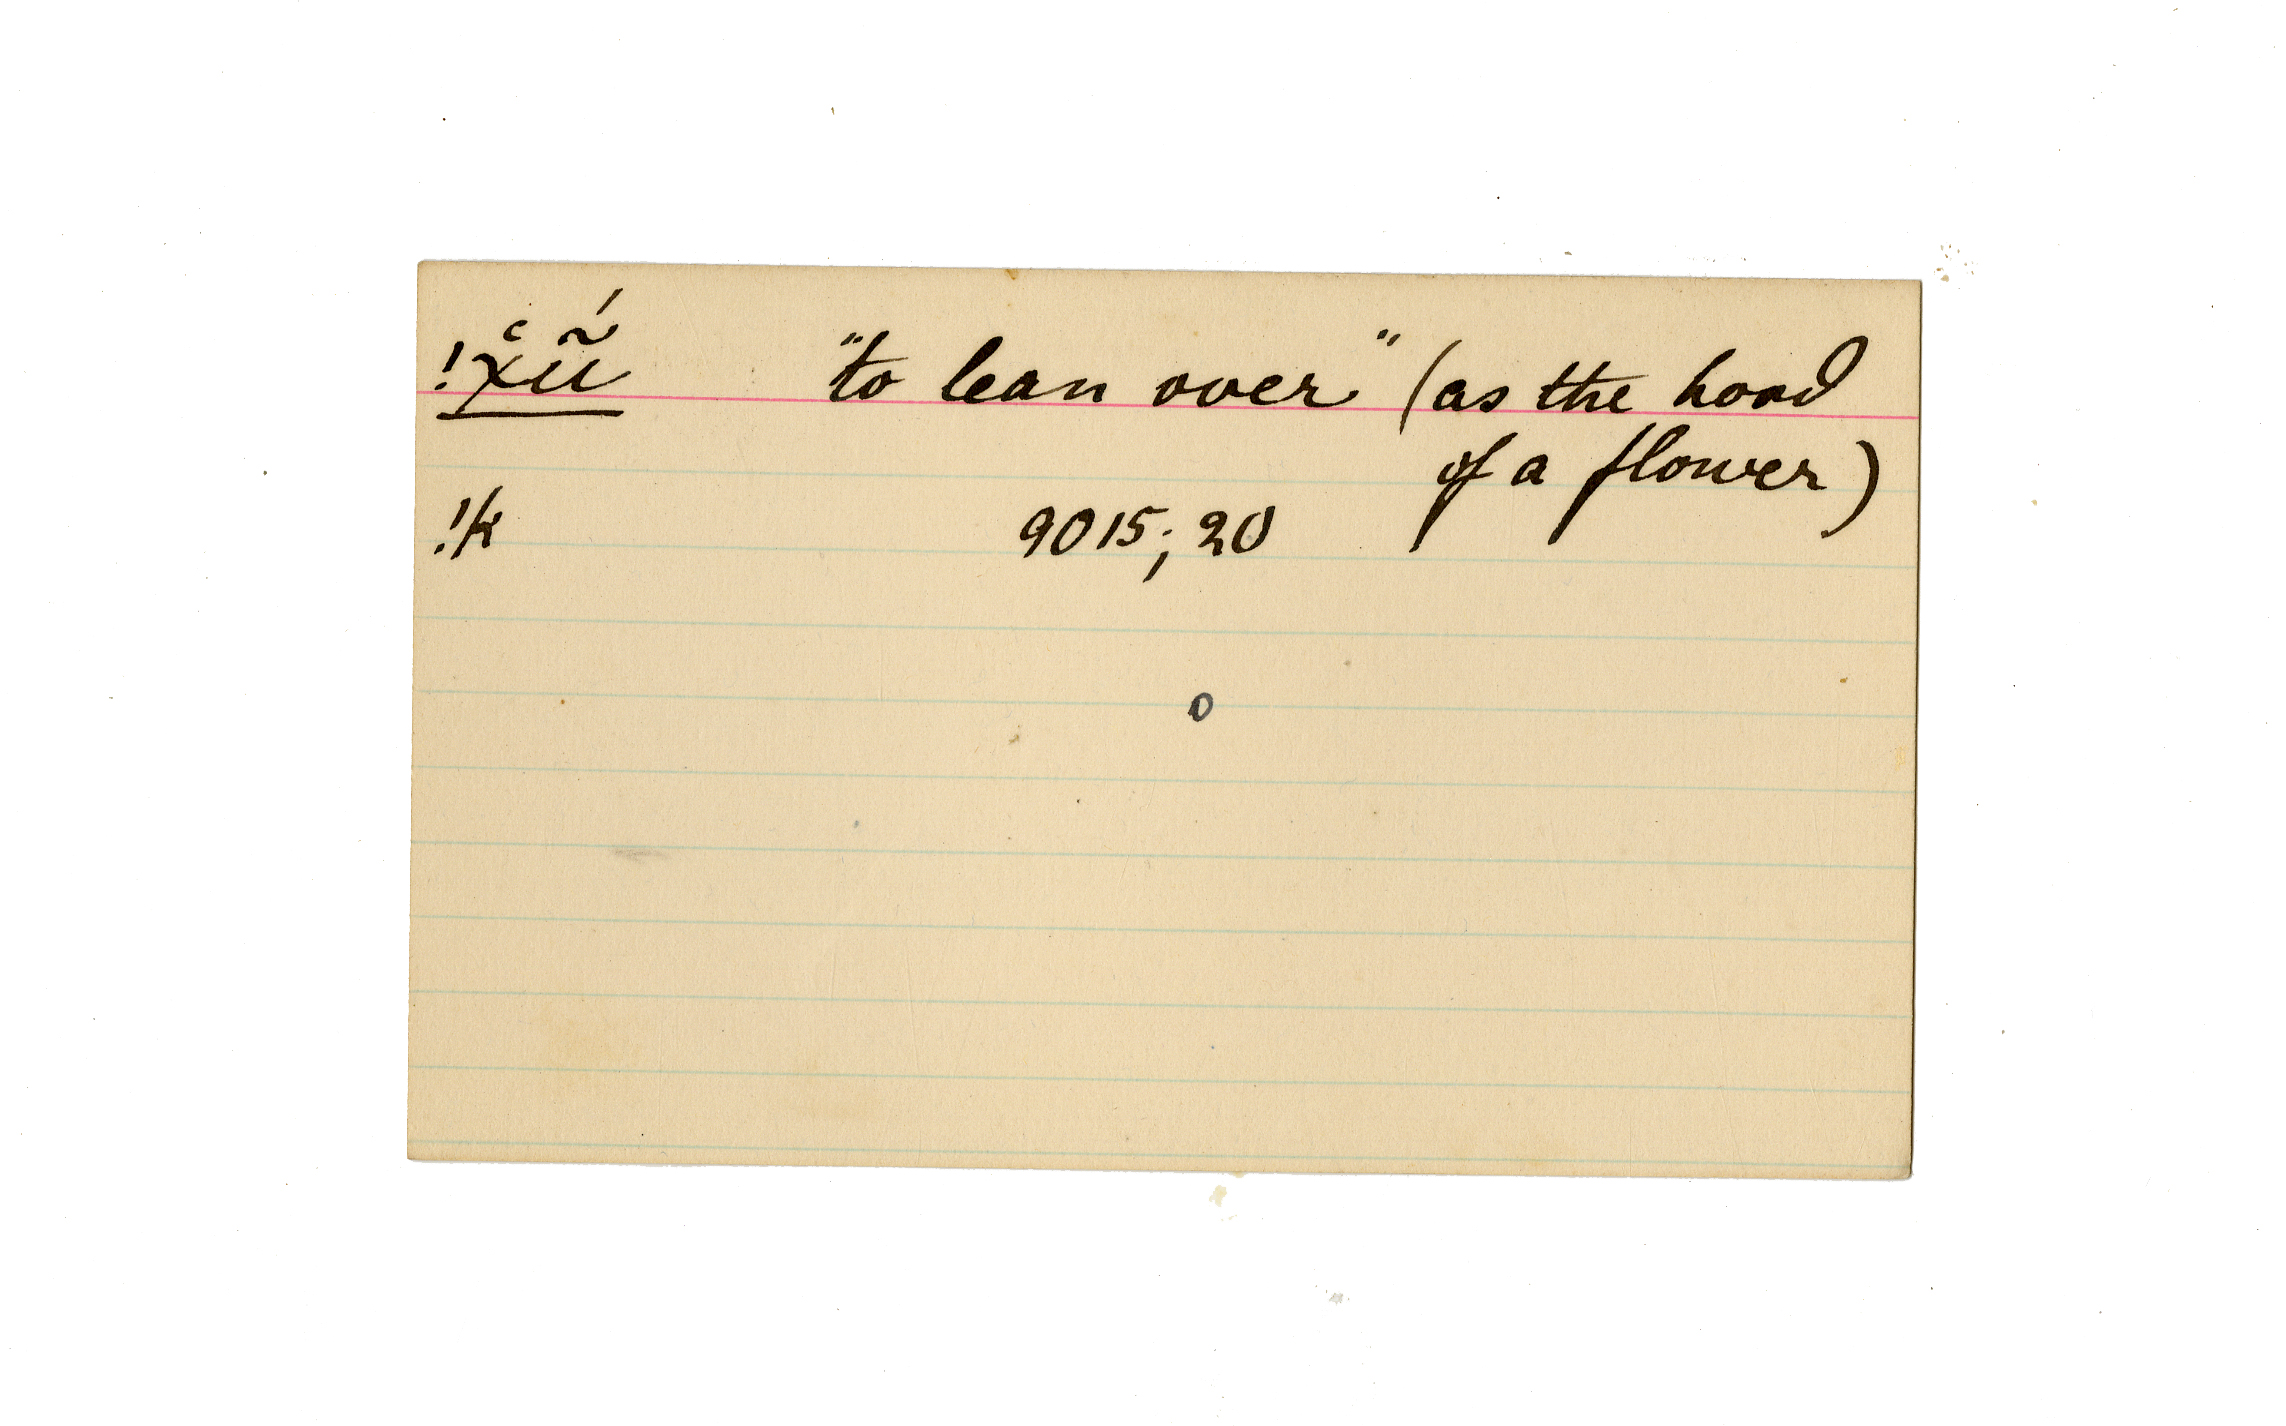 !x͑ṹ̃ "to lean over" (as the hood
of a flower)
!k 9015; 20
o